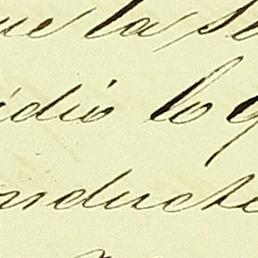 ue la se
idió lo q
nducte